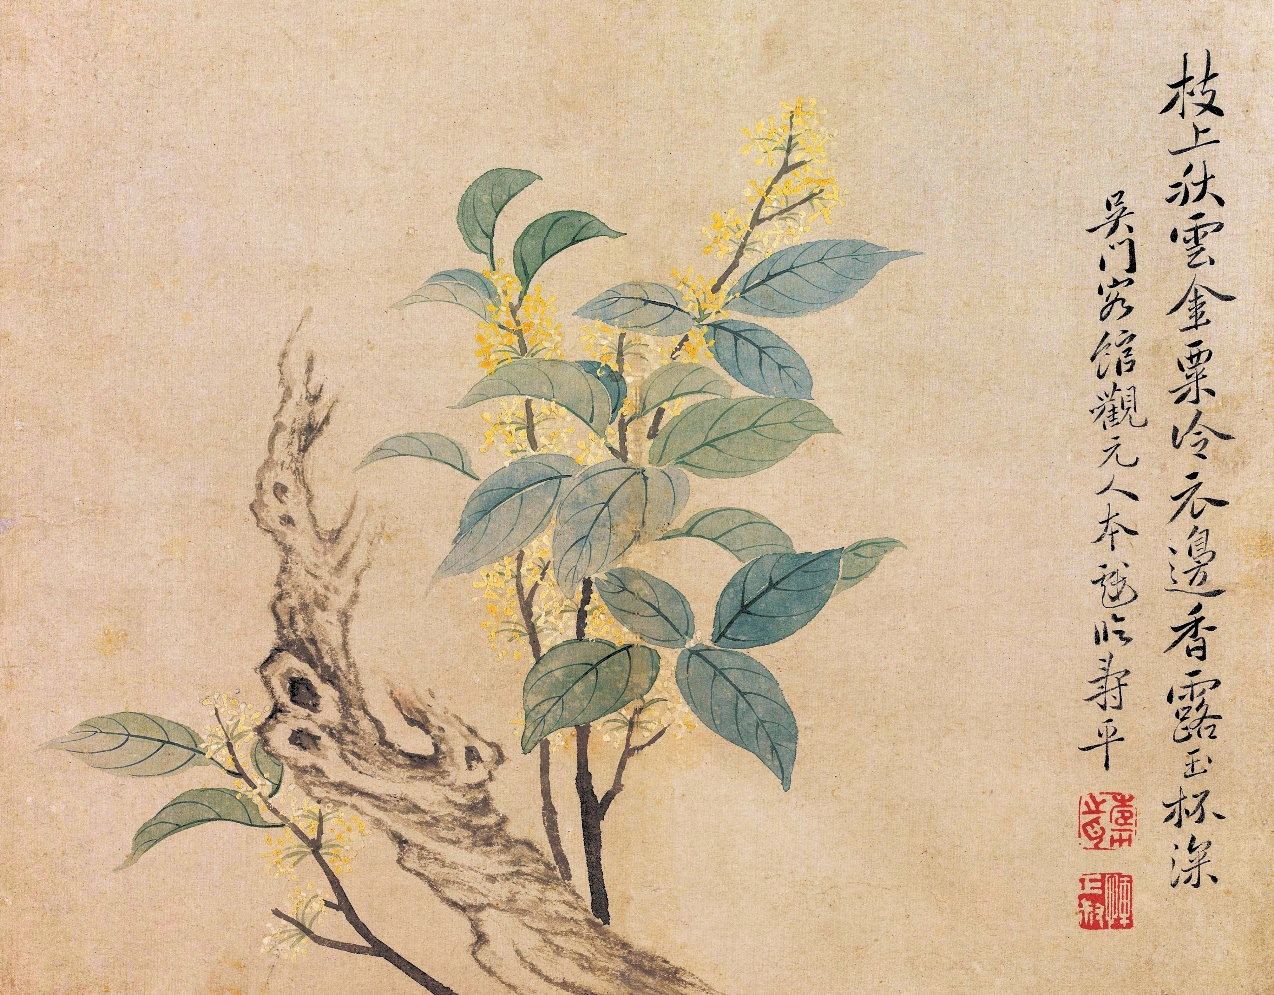 枝上秋雲金粟冷衣邊香露玉杯深
吳門客館觀元人本戲臨壽平